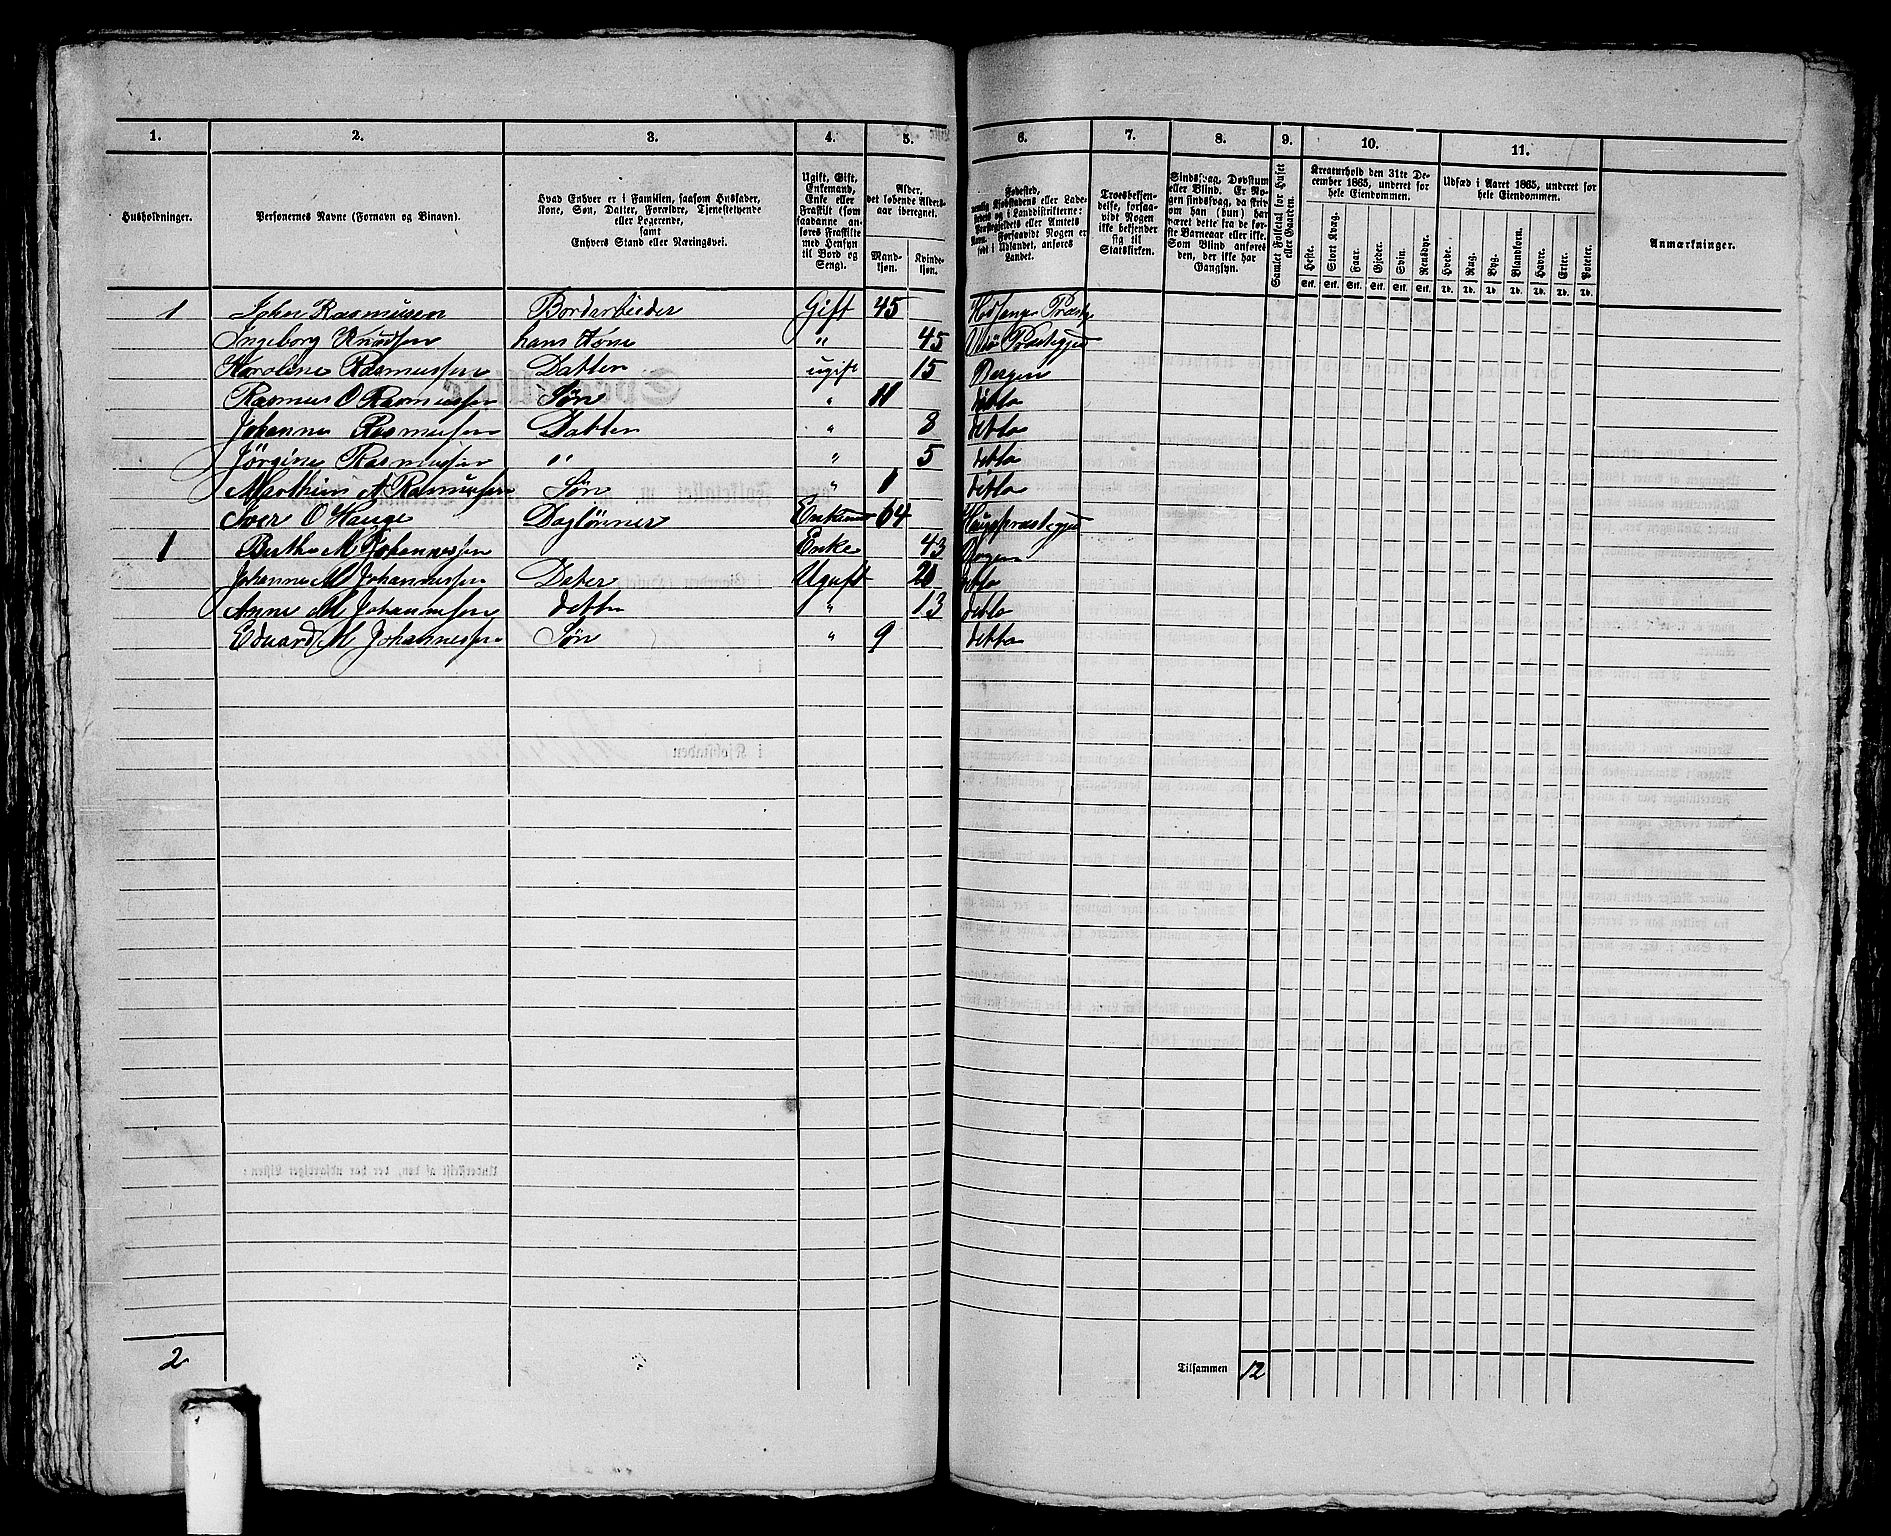 1. 2. 3. 4. 5. 6. 7. 8. 9. 10. 11.
Husholdninger.
Personernes Navne (Fornavn og Binavn).
Hvad Enhver er i Familien, saasom Husfader,
Kone, Søn, Datter, Forældre, Tjenestetyende
eller Logerende,
samt
Enhvers Stand eller Næringsvei.
Ugift, Gift,
Enkemand,
Enke eller
Fraskilt (som
saadanne an-
føres Fraskilte
med Hensyn
til Bord og
Seng).
Alder,
det løbende Alders-
aar iberegnet.
Mand-
kjøn.
Kvinde-
kjøn.
Fødested,
nemlig Kjøbstadens eller Lade-
stedets og i Landdistrikterne:
Præstegjeldets eller Amtets
Navn. Forsaavidt Nogen er
født i Udlandet, anføres
Landet.
Troesbekjen-
delse, forsaa-
vidt Nogen
ikke bekjender
sig til
Statskirken.
Sindssvag, Døvstum
eller Blind. Er No-
gen sindssvag, da skriv
om han (hun) har
været dette fra de før-
ste Barneaar eller ikke.
Som Blind anføres
den, der ikke har
Gangsyn.
Samlet Folketal for Huset
eller Gaarden.
Kreaturhold den 31te De-
cember 1865, underet for
hele Eiendommen.
Heste. Stort Kvæg. Faar. Gjeder. Svin. Rensdyr.
Stk. Stk. Stk. Stk. Stk. Stk.
Udsæd i Aaret 1865, underet for
hele Eiendommen.
Hvede. Rug. Byg. Blandkorn. Havre. Erter. Poteter.
Td. Td. Td. Td. Td. Td. Td.
Anmærkninger.
1 Rasmussen Bordarbeider Gift 45
Ingeborg Knudsen hans Kone " 45 Præstegjed
Karoline Rasmussen Datter ugift 15 Bergen
Rasmus O Rasmussen Søn " 11 ditto
Johanne Rasmussen Datter " 8 ditto
Jörgine Rasmussen " " 5 ditto
A Rasmussen Søn " 1 ditto
Iver O Hauge Daglønner Enkemand 64
1 Berthe M Johannesen Enke 43 Bergen
Johanne M Johannessen Dater Ugift 20 ditto
Anne M Johannesen dette " 13 ditto
Eduard M Johannessen Søn " 9 ditto
2
Tilsammen 12